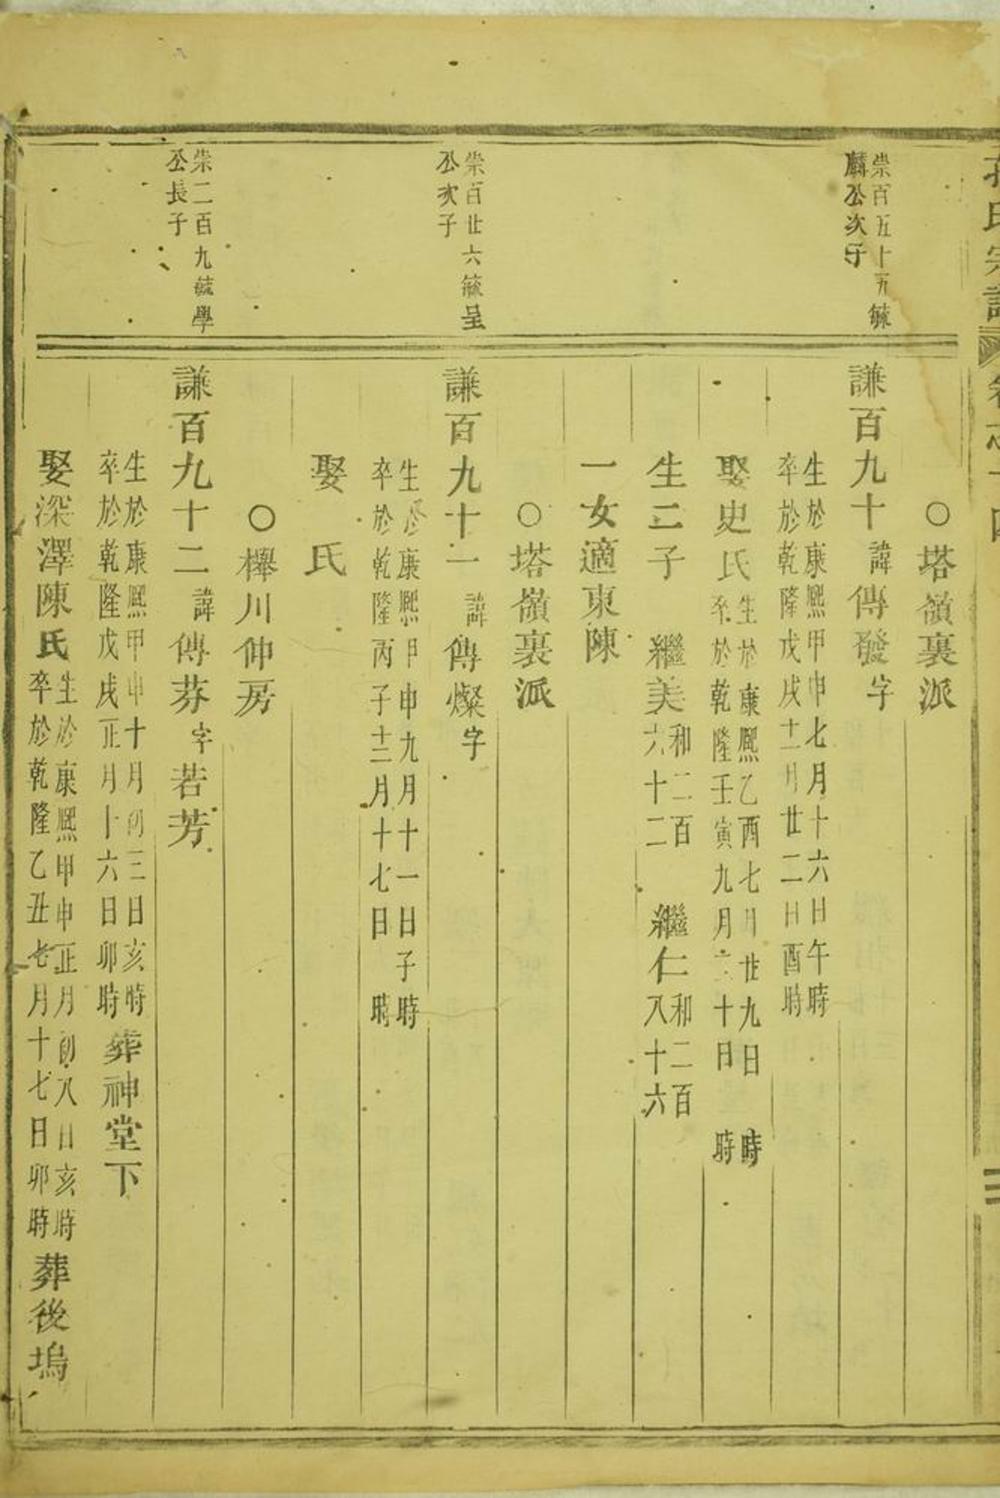 氏宗譜
崇百五十五毓
麟公次子
崇百廿六毓呈
公次子
崇二百九毓學
公長子
○塔嶺裏派
謙百九十 諱傳發字
生於康熙甲申七月十六日午時
卒於乾隆戊戌十二月廿二日酉時
娶史氏
生於康熙乙酉七月廿九日 時
卒於乾隆壬寅九月二十日 時
生二子 繼美 和二百六十二 繼仁 和二百八十六
一女適東陳
○塔嶺裏派
謙百九十一 諱傳燦字
生於康熙甲申九月十一日子時
卒於乾隆丙子十二月十七日 時
娶 氏
○櫸川仲房
謙百九十二 諱傳芬字若芳
生於康熙甲申十月初三日亥時
卒於乾隆戊戌正月十六日卯時
葬神堂下
娶深澤陳氏
生於康熙甲申正月初八日亥時
卒於乾隆乙丑七月十七日卯時
葬後塢